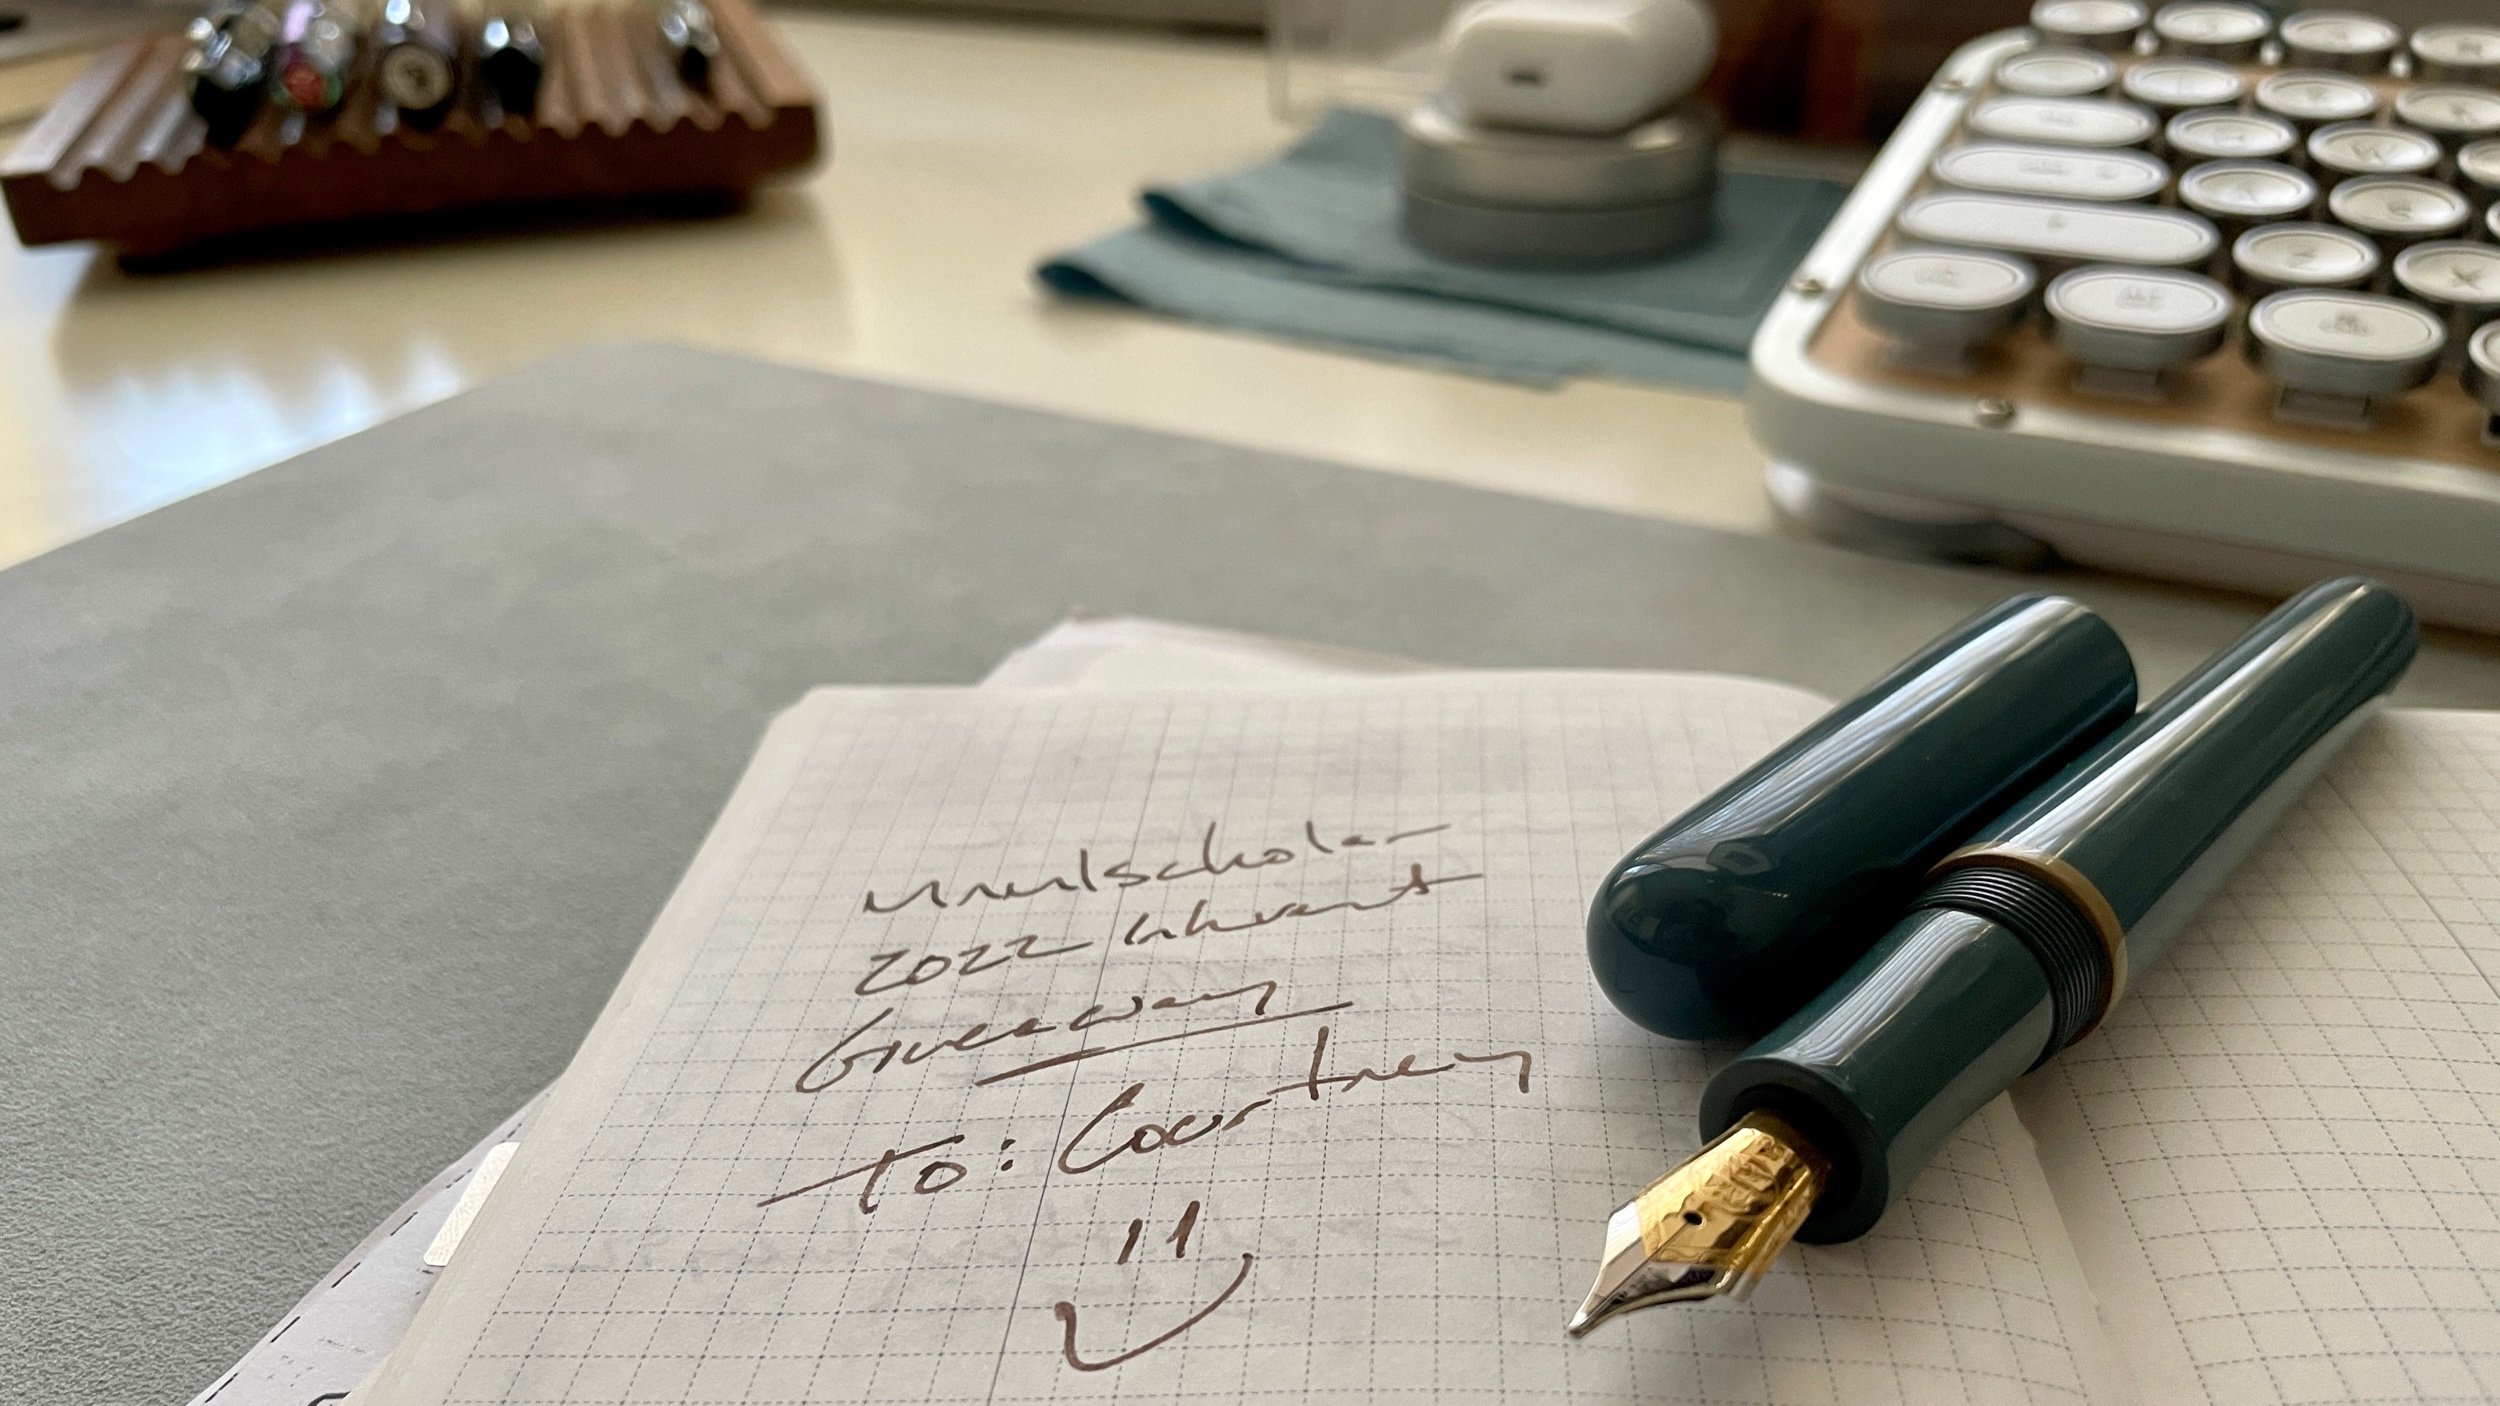 Mnmlscholar
2022 Inkvent
Giveaway
To: Courtney